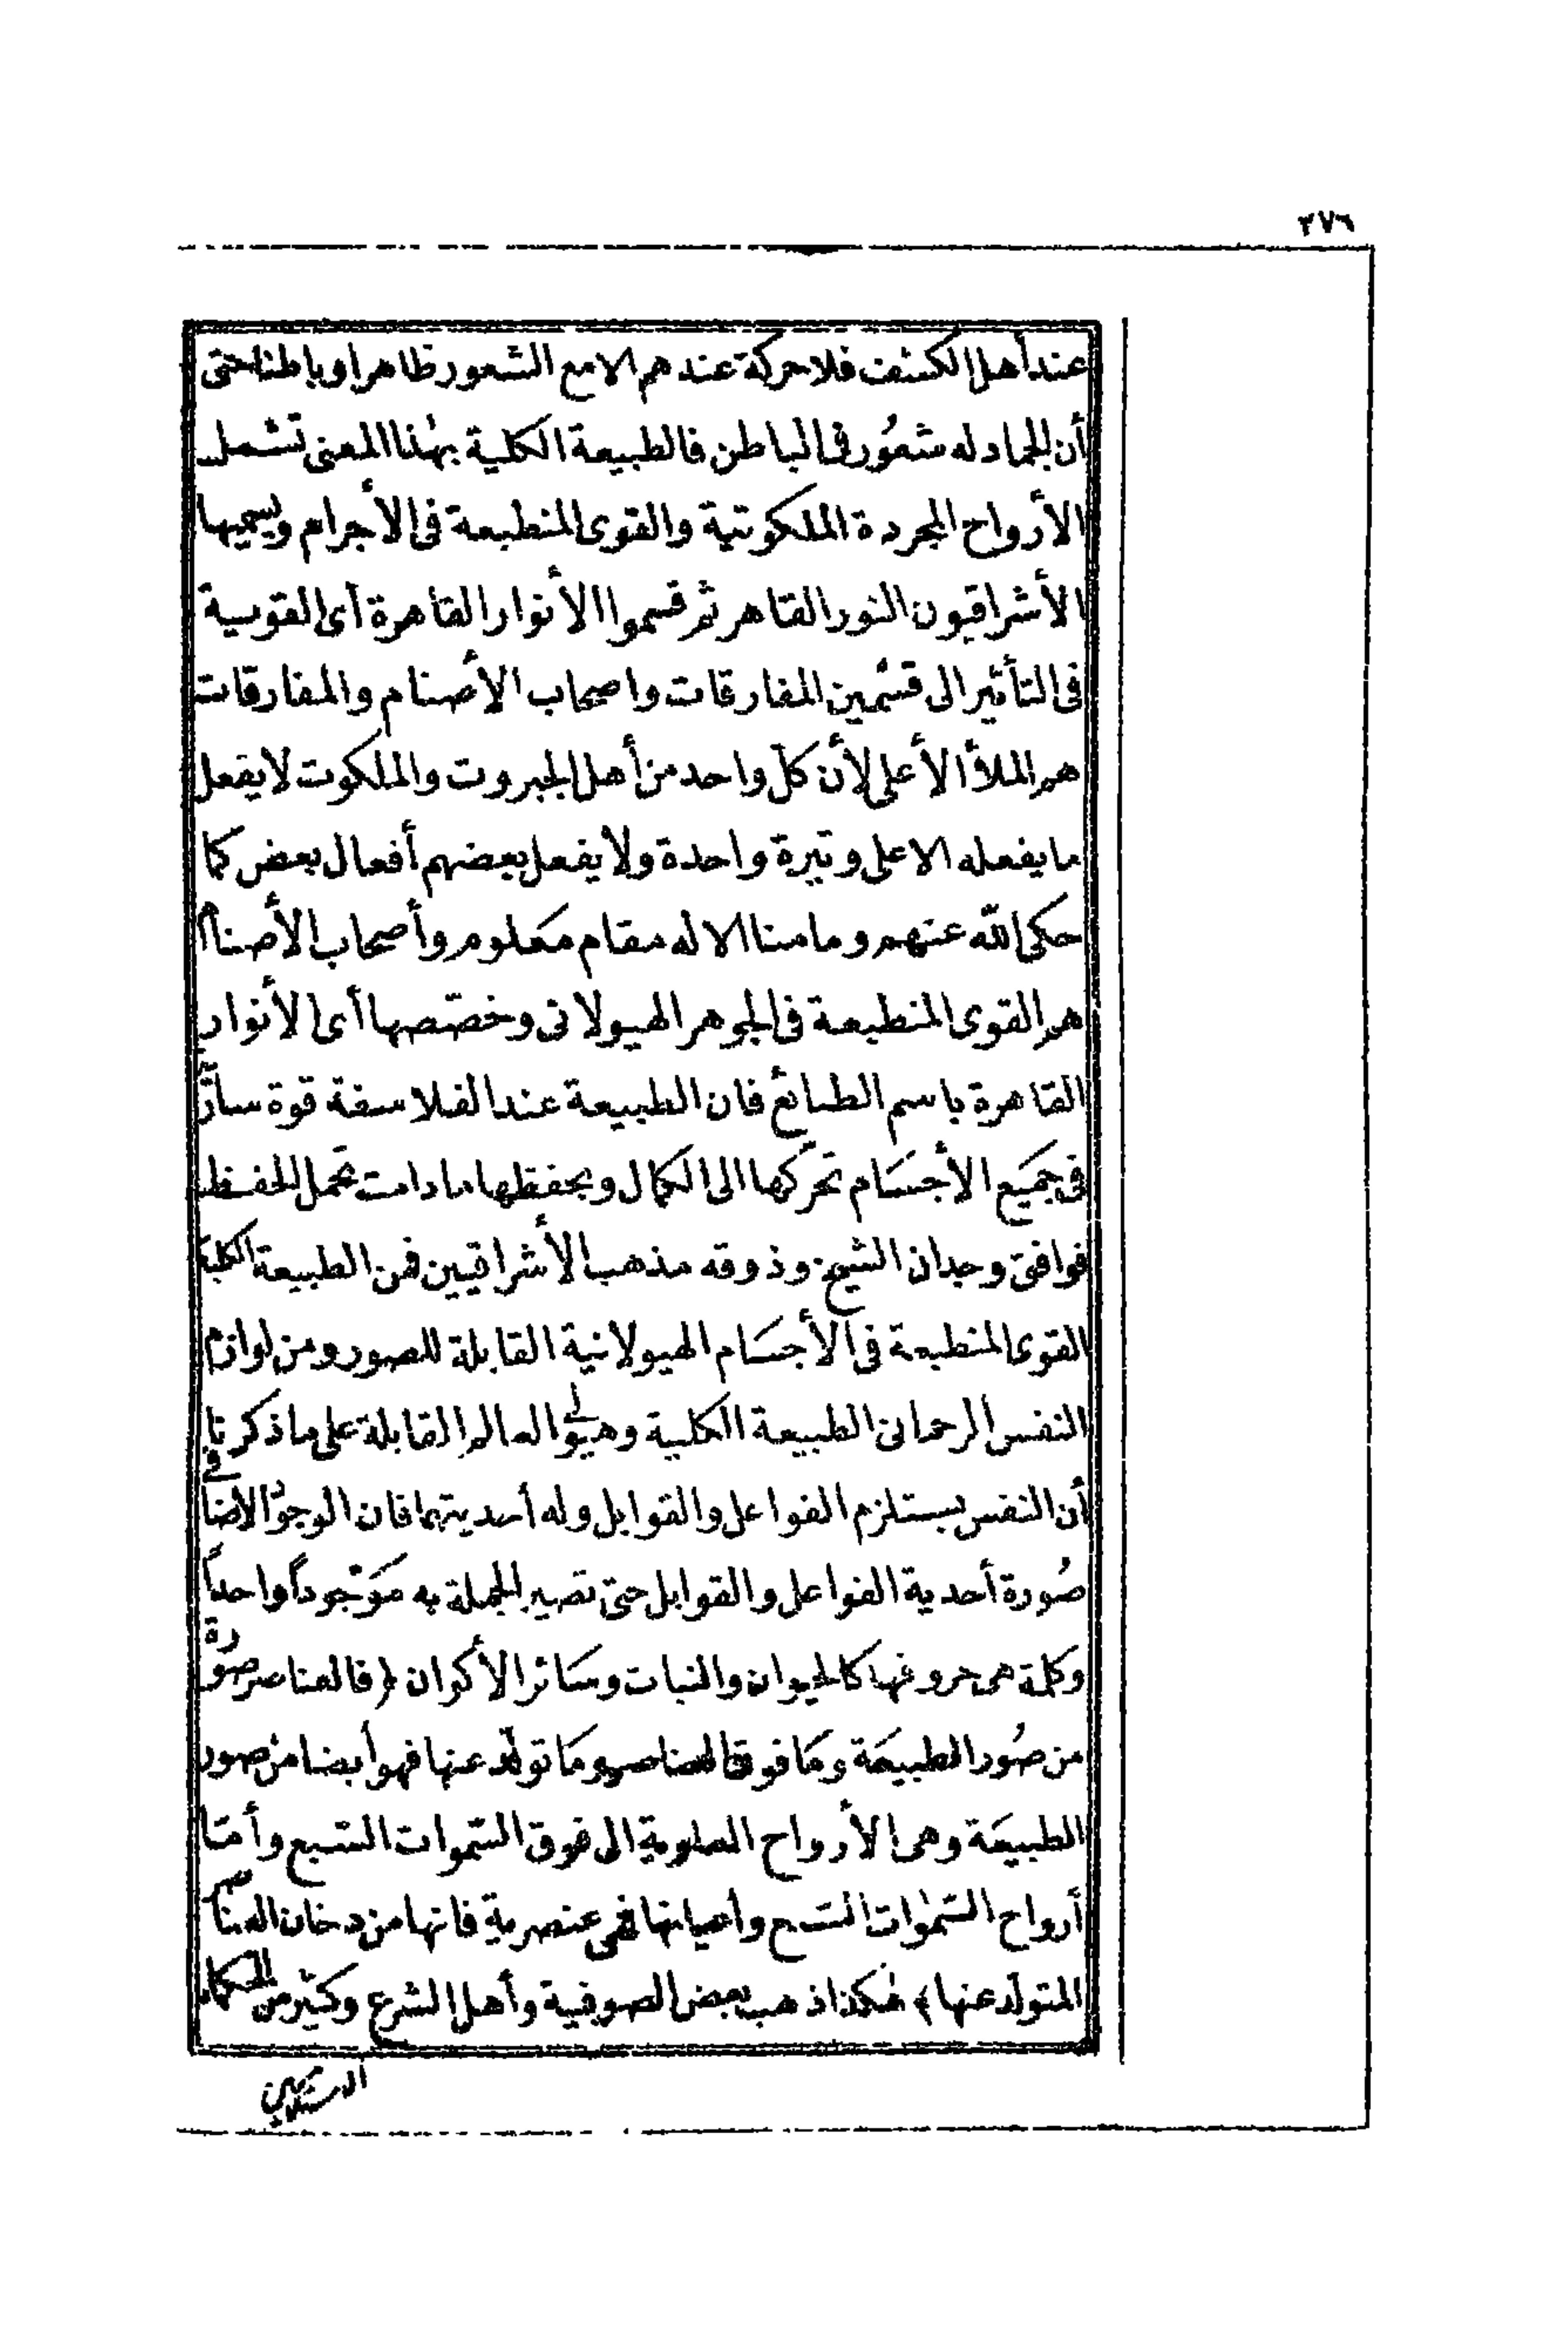 ٣٧٦
عند أهل الكشف فلا حركة عندهم الا مع الشعور ظاهرا وباطنا حتى
أن الجماد له شعُور فى الباطن فالطبيعة الكلية بهٰذا المعنى تشمل
الأرواح المجردة الملكوتية والقوى المنطبعة فى الأجرام ويسميها
الأشراقيون النور القاهر ثم قسموا الأنوار القاهرة أى القوسية
فى التأثير الى قسمين المفارقات واصحاب الأصنام والمفارقات
هم الملأ الأعلى لأن كلّ واحد من أهل الجبروت والملكوت لا يفعل
ما يفعله الا على وتيرة واحدة ولا يفعل بعضهم أفعال بعض كما
حكى الله عنهم وما منا الا له مقام معلوم وأصحاب الأصنام
هم القوى المنطبعة فى الجوهر الهيولانى وخصّصها أى الأنوار
القاهرة باسم الطبائع فان الطبيعة عند الفلاسفة قوة سارَّ
فى جميَع الأجسَام تحرّكها الى الكمال ويحفظها ما دامت تحمل الحفظ
فوافق وجدان الشيخ وذوقه مذهب الأشراقيين فمن الطبيعة الكلية
القوى المنطبعة فى الأجسَام الهيولانية القابلة للصور ومن لوازم
النفس الرحمانى الطبيعة الكلية وهيولى العالم القابلة على ما ذكر نا
أن النفس يستلزم الفواعل والقوابل وله أحديتهما فان الوجود الاضافى
صُورة أحدية الفواعل والقوابل حتى تصير الجملة به مَوْجوداً واحداً
وكلمة هى حروفها كالحيوان والنبات وسَائر الأكوان ﴿فالعناصر صُورة
من صُور الطبيعَة ومَا فوق العناصر ومَا تولّد عنها فهو أيضا من صور
الطبيعَة وهى الأرواح العلوية الى فوق السّموات السّبع وأمّا
أرواح السّمٰوات السّبع وأعيانها فهى عنصرية فانها من دخان العناصر
المتولّد عنها﴾ هٰكذا ذهب بعض الصوفية وأهل الشرع وكثير من الحكماء